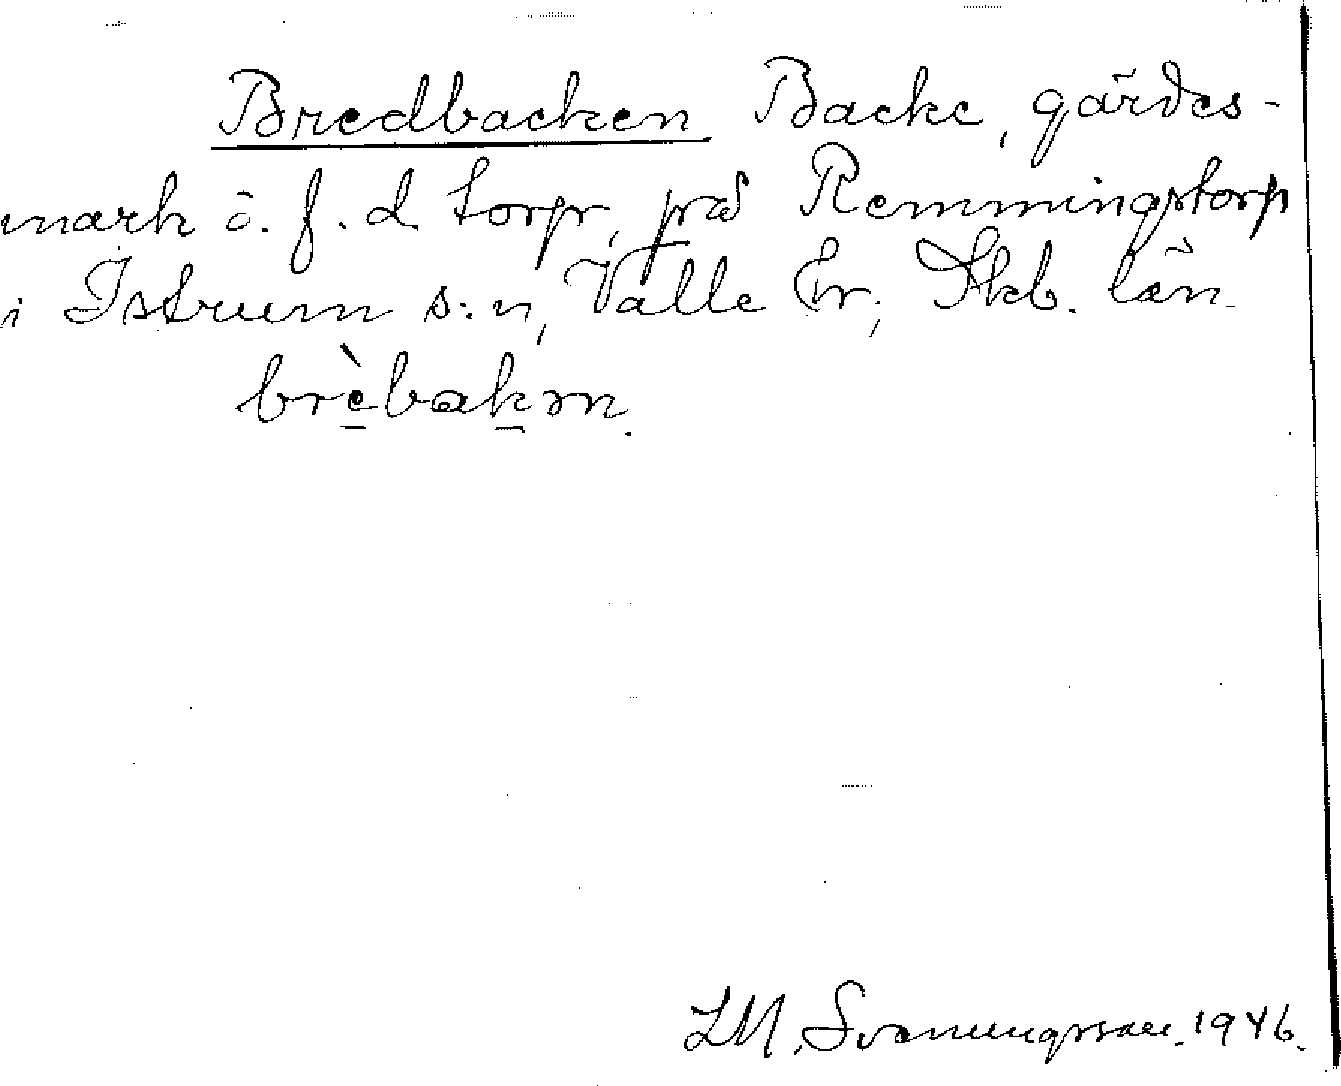 Bredbacken Backe, gärdes-
mark o. f. d torp, på Remmingstorp
i Istrum s:n, Valle hr, Skb. län
brèbakən.
LM. Svenungsson. 1946.